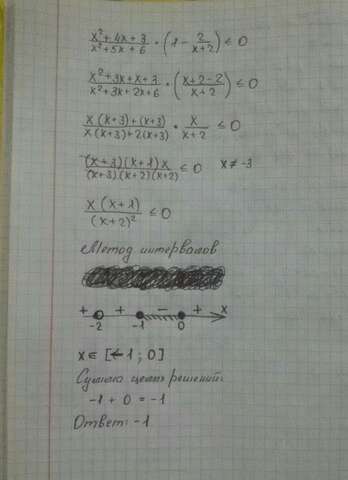 (x²+4x+3)/(x²+5x+6) · (1 - 2/(x+2)) ≤ 0
(x²+3x+x+3)/(x²+3x+2x+6) · ((x+2-2)/(x+2)) ≤ 0
(x(x+3)+(x+3))/(x(x+3)+2(x+3)) · x/(x+2) ≤ 0
((x+3)(x+1)x)/((x+3)·(x+2)(x+2)) ≤ 0 x ≠ -3
(x(x+1))/((x+2)²) ≤ 0
Метод интервалов
+ + - + x
-2 -1 0
x ∈ [-1; 0]
Сумма целых решений:
-1 + 0 = -1
Ответ: -1